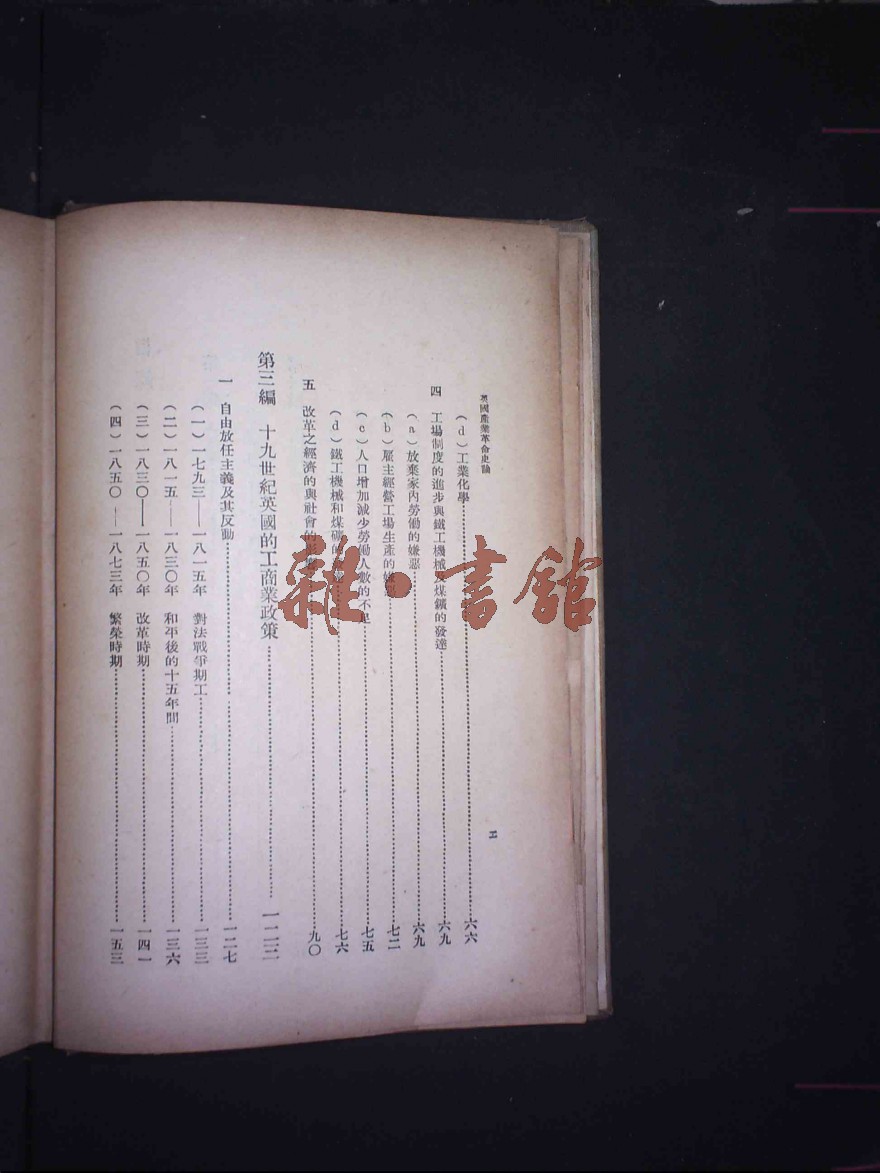 英國產業革命史論
（d）工業化學……六六
四　工場制度的進步與鐵工機械及煤鑛的發達……六九
（a）放棄家內勞働的嫌惡……六九
（b）雇主經營工場生產的……七二
（c）人口增加減少勞働人數的不足……七五
（d）鐵工機械和煤礦的……七六
五　改革之經濟的與社會的……九〇
第三編　十九世紀英國的工商業政策……一二三
一　自由放任主義及其反動……一二七
（一）一七九三——一八一五年　對法戰爭期工……一三三
（二）一八一五——一八三〇年　和平後的十五年間……一三六
（三）一八三〇——一八五〇年　改革時期……一四一
（四）一八五〇——一八七三年　繁榮時期……一五三
雜·書館